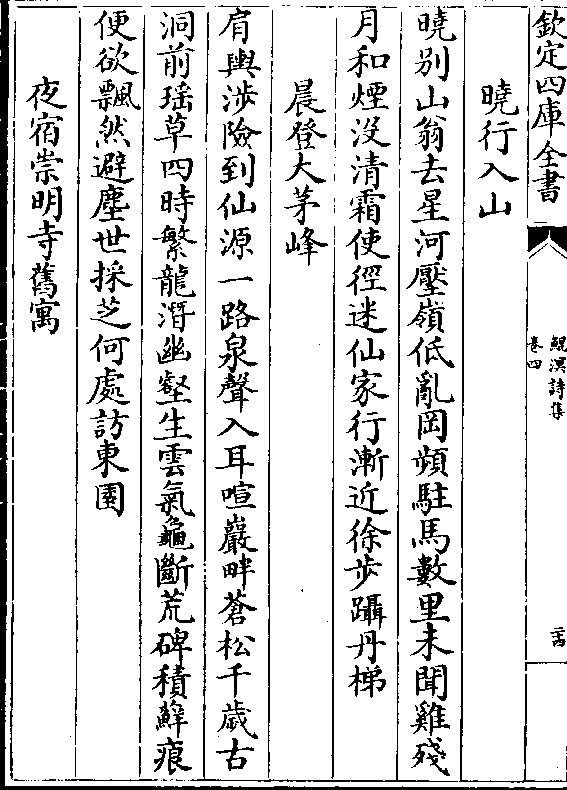 欽定四庫全書
鯤溟詩集
卷四
二十四
曉行入山
曉別山翁去星河壓嶺低亂岡頻駐馬數里未聞雞殘
月和煙没清霜使徑迷仙家行漸近徐步躡丹梯
晨登大茅峰
肩輿涉險到仙源一路泉聲入耳喧巖畔蒼松千歲古
洞前瑶草四時繁龍潛幽壑生雲氣龜斷荒碑積蘚痕
便欲飄然避塵世採芝何處訪東園
夜宿崇明寺舊寓